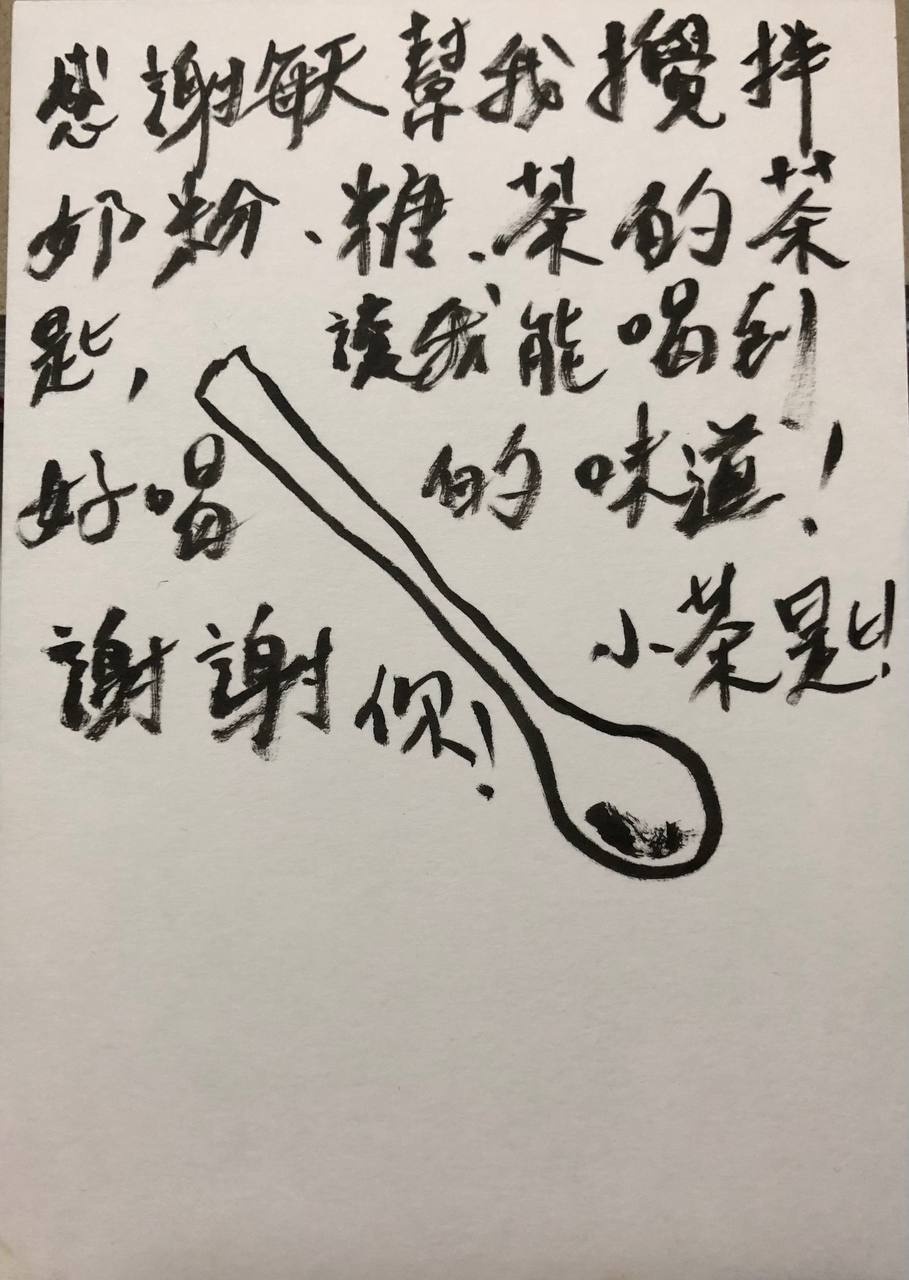 感謝每天幫我攪拌
奶粉、糖、茶的茶
匙，讓我能喝到
好喝的味道！
小茶匙！
謝謝你！